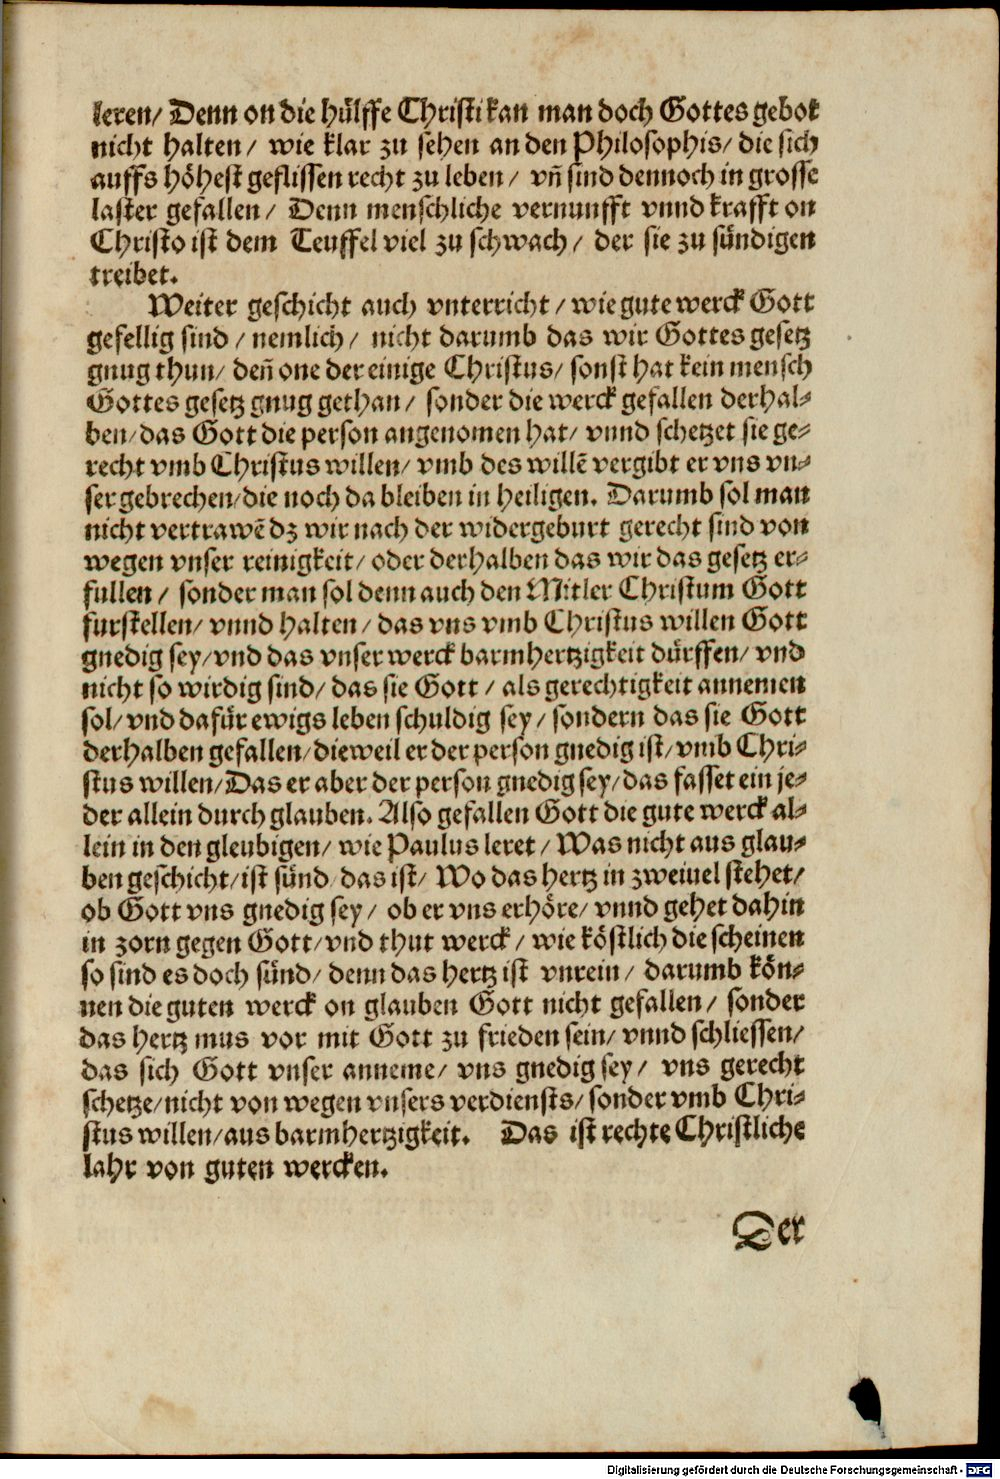 leren/ Denn on die hülffe Christi kan man doch Gottes gebot
nicht halten/ wie klar zu sehen an den Philosophis/ die sich
auffs höhest geflissen recht zu leben/ vñ sind dennoch in grosse
laster gefallen/ Denn menschliche vernunfft vnnd krafft on
Christo ist dem Teuffel viel zu schwach/ der sie zu sündigen
treibet.
Weiter geschicht auch vnterricht/ wie gute werck Gott
gefellig sind/ nemlich/ nicht darumb das wir Gottes gesetz
gnug thun/ deñ one der einige Christus/ sonst hat kein mensch
Gottes gesetz gnug gethan/ sonder die werck gefallen derhal-
ben/ das Gott die person angenomen hat/ vnnd schetzet sie ge-
recht vmb Christus willen/ vmb des willē vergibt er vns vn-
ser gebrechen/ die noch da bleiben in heiligen. Darumb sol man
nicht vertrawē dz wir nach der widergeburt gerecht sind von
wegen vnser reinigkeit/ oder derhalben das wir das gesetz er-
fullen/ sonder man sol denn auch den Mitler Christum Gott
furstellen/ vnnd halten/ das vns vmb Christus willen Gott
gnedig sey/ vnd das vnser werck barmhertzigkeit dürffen/ vnd
nicht so wirdig sind/ das sie Gott/ als gerechtigkeit annemen
sol/ vnd dafür ewigs leben schuldig sey/ sondern das sie Gott
derhalben gefallen/ dieweil er der person gnedig ist/ vmb Chri-
stus willen/ Das er aber der person gnedig sey/ das fasset ein je-
der allein durch glauben. Also gefallen Gott die gute werck al-
lein in den gleubigen/ wie Paulus leret/ Was nicht aus glau-
ben geschicht/ ist sünd/ das ist/ Wo das hertz in zweiuel stehet/
ob Gott vns gnedig sey/ ob er vns erhöre/ vnnd gehet dahin
in zorn gegen Gott/ vnd thut werck/ wie köstlich die scheinen
so sind es doch sünd/ denn das hertz ist vnrein/ darumb kön-
nen die guten werck on glauben Gott nicht gefallen/ sonder
das hertz mus vor mit Gott zu frieden sein/ vnnd schliessen/
das sich Gott vnser anneme/ vns gnedig sey/ vns gerecht
schetze/ nicht von wegen vnsers verdiensts/ sonder vmb Chri-
stus willen/ aus barmhertzigkeit. Das ist rechte Christliche
lahr von guten wercken.
Der
Digitalisierung gefördert durch die Deutsche Forschungsgemeinschaft - DFG